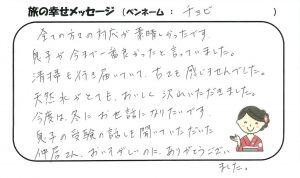 旅の幸せメッセージ（ペンネーム：チョビ）
全ての方々の対応が素晴しかったです。
息子が今まで一番良かったと言っていました。
清掃も行き届いていて、古さも感じませんでした。
天然水がとても、おいしく沢山いただきました。
今度は、冬にお世話になりたいです。
息子の受験の話しも聞いていただいた
仲居さん、おいそがしいのに、ありがとうござい
ました。